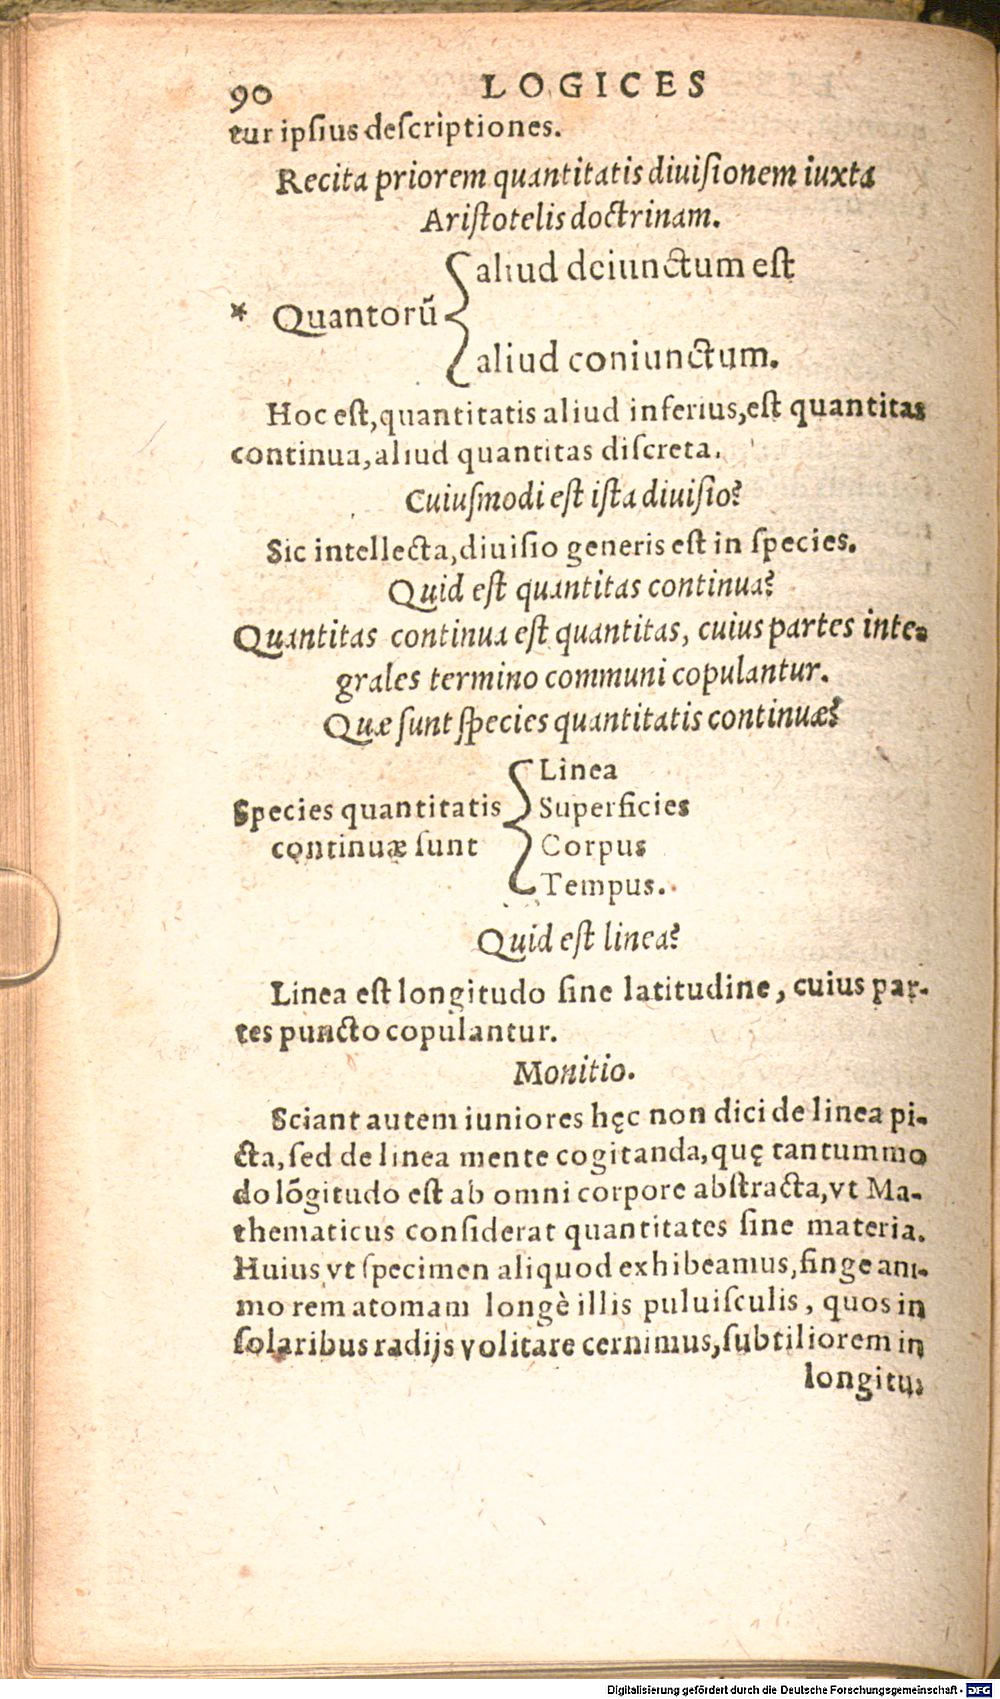 90 LOGICES
tur ipſius deſcriptiones.
Recita priorem quantitatis diuiſionem iuxta
Ariſtotelis doctrinam.
aliud deiunctum eſt
* Quantorũ
aliud coniunctum.
Hoc eſt, quantitatis aliud inferius, eſt quantitas
continua, aliud quantitas diſcreta.
Cuiuſmodi eſt iſta diuiſio?
Sic intellecta, diuiſio generis eſt in ſpecies.
Quid eſt quantitas continua?
Quantitas continua eſt quantitas, cuius partes inte-
grales termino communi copulantur.
Quæ ſunt ſpecies quantitatis continuæ?
Linea
Species quantitatis Superficies
continuæ ſunt Corpus
Tempus.
Quid eſt linea?
Linea eſt longitudo ſine latitudine, cuius par-
tes puncto copulantur.
Monitio.
Sciant autem iuniores hęc non dici de linea pi-
cta, ſed de linea mente cogitanda, quę tantummo
do lõgitudo eſt ab omni corpore abſtracta, vt Ma-
thematicus conſiderat quantitates ſine materia.
Huius vt ſpecimen aliquod exhibeamus, finge ani-
mo rem atomam longè illis puluiſculis, quos in
ſolaribus radijs volitare cernimus, ſubtiliorem in
longitu-
Digitalisierung gefördert durch die Deutsche Forschungsgemeinschaft - DFG